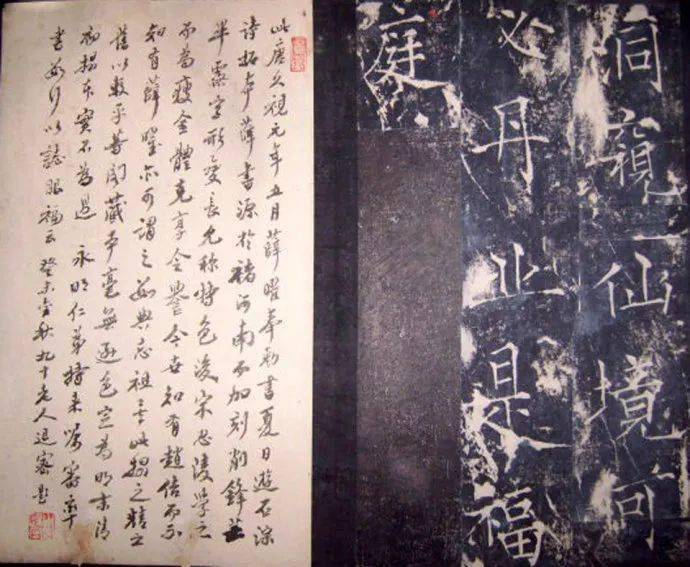 洞窺仙境何
必丹丘是福
庭
此唐久視元年五月薛曜奉勅書夏日遊石淙
诗拓本薛書源於褚河南而加刻削鋒芒
半露字形變長尤稱特色後宋思陵學之
而為瘦金體克享令譽今世知有趙佶而不
知有薛曜亦可謂之數典忘祖矣此搨之精之
舊以較平昔閱藏本毫無遜色定為明末清
初搨本實不為過 永明仁弟携来囑審並
書數行以誌眼福云 癸未金秋九十老人退密題